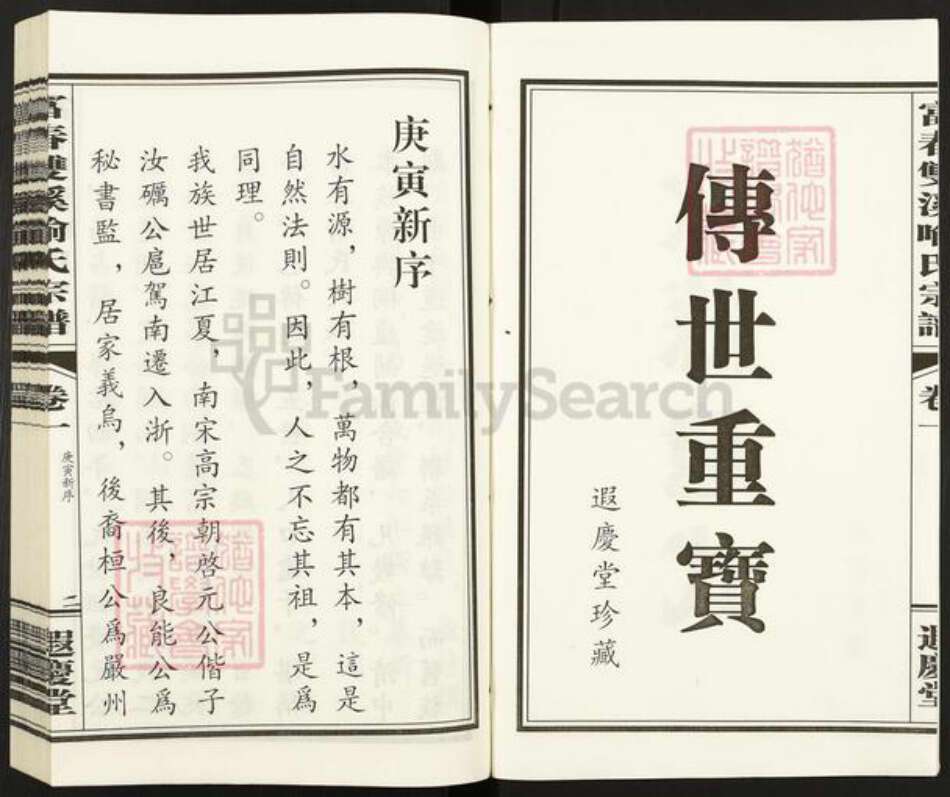 富春雙溪喻氏宗譜
卷一
遐慶堂
傳世重寶
遐慶堂珍藏
庚寅新序
水有源，樹有根，萬物都有其本，這是
自然法則。因此，人之不忘其祖，是爲
同理。
我族世居江夏，南宋高宗朝啓元公偕子
汝礪公扈駕南遷入浙。其後，良能公爲
秘書監，居家義烏，後裔桓公爲嚴州
富春雙溪喻氏宗譜
卷一
庚寅新序
二
遐慶堂
FamilySearch